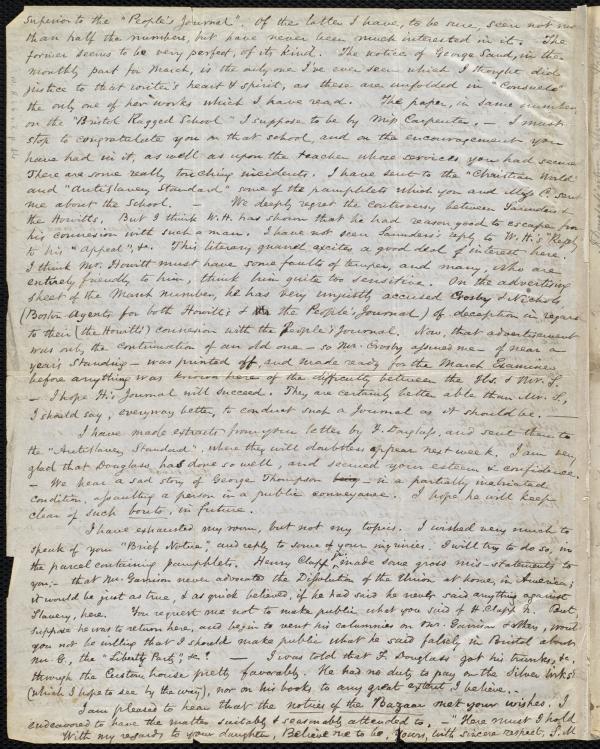 superior to the "People's Journal". Of the latter I have, to be sure, seen not more
than half the numbers, but have never been much interested in it. The
former seems to be very perfect, of its kind. The notice of George Sand, in the
monthly part for March, is the only one I've ever seen which I thought did
justice to that writer's heart & spirit, as these are unfolded in "Consuelo"
the only one of her works which I have read. The paper, in same number
on the "Bristol Ragged School" I suppose to be by Miss Carpenter, – I must
stop to congratulate you on that school, and on the encouragement you
have had in it, as well as upon the teacher whose services you had secured
There are some really touching incidents. I have sent to the "Christian World"
and "Antislavery Standard" some of the pamphlets which you and Miss C. sent
me about the school. – We deeply regret the controversy between Saunders &
the Howitts. But I think W.H. has shown that he had reason good to escape from
his connexion with such a man. I have not seen Saunders's reply to W.H.'s "Reply"
to his "Appeal", &c. This literary quarrel excites a good deal of interest here.
I think Mr. Howitt must have some faults of temper, and many, who are
entirely friendly to him, think him quite too sensitive. On the advertising
sheet of the March number, he has very unjustly accused Crosby & Nichols
(Boston Agents for both Howitt's & the People's Journal) of deception in regard
to their (the Howitts') connexion with the People's Journal. Now, that advertisement
was only the continuation of an old one – so Mr. Crosby assured me – of near a
year's standing – was printed off, and made ready for the March Examiner
before anything was known here of the difficulty between the Hs. & Mr. S.
– I hope H's Journal will succeed. They are certainly better able than Mr. S,
I should say, everyway better, to conduct such a Journal as it should be. –
I have made extracts from your letter by F. Douglass, and sent them to
the "Antislavery Standard", where they will doubtless appear next week. I am very
glad that Douglass has done so well, and secured your esteem & confidence.
– We hear a sad story of George Thompson – in a partially inebriated
condition, assaulting a person in a public conveyance. I hope he will keep
clear of such bouts, in future.
I have exhausted my room, but not my topics. I wished very much to
speak of your "Brief Notice", and reply to some of your inquiries. I will try to do so, in
the parcel containing pamphlets. Henry Clapp, Jr. made some gross mis-statements to
you; – that Mr. Garrison never advocated the Dissolution of the Union at home, in America;
it would be just as true, & as quick believed, if he had said he never said anything against
Slavery, here. You request me not to make public what you said of H. Clapp Jr. But,
suppose he was to return here, and begin to vent his calumnies on Mr. Garrison & others, would
you not be willing that I should make public what he said falsely in Bristol about
Mr. G., the "Liberty Party", &c.? – I was told that F. Douglass got his trunks, &c.
through the Custom house pretty favorably. He had no duty to pay on the Silver Inkstd.
(which I hope to see by the way), nor on his books, to any great extent, I believe. –
I am pleased to hear that the notices of the Bazaar met your wishes. I
endeavored to have the matter suitably & seasonably attended to. – Here must I hold
With my regards to your daughter, Believe me to be, Yours, with sincere respect, S. M